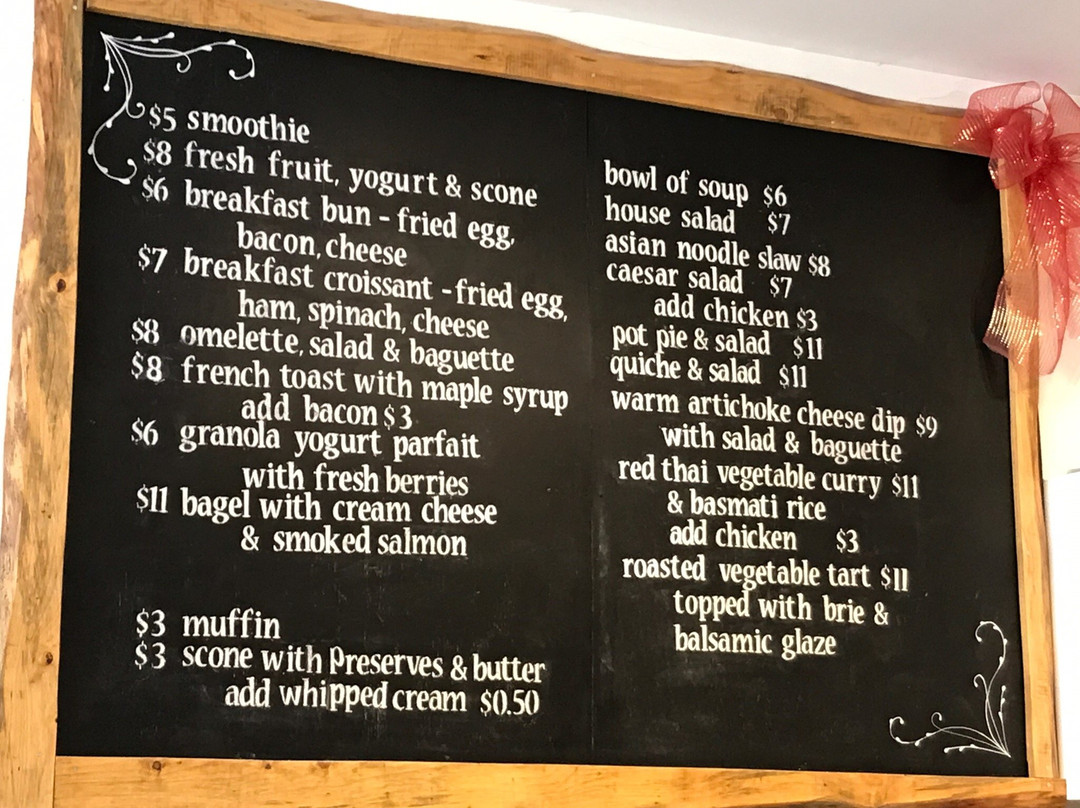 $5 smoothie
$8 fresh fruit, yogurt & scone
$6 breakfast bun - fried egg,
bacon, cheese
$7 breakfast croissant - fried egg,
ham, spinach, cheese
$8 omelette, salad & baguette
$8 french toast with maple syrup
add bacon $3
$6 granola yogurt parfait
with fresh berries
$11 bagel with cream cheese
& smoked salmon
$3 muffin
$3 scone with Preserves & butter
add whipped cream $0.50
bowl of soup $6
house salad $7
asian noodle slaw $8
caesar salad $7
add chicken $3
pot pie & salad $11
quiche & salad $11
warm artichoke cheese dip $9
with salad & baguette
red thai vegetable curry $11
& basmati rice
add chicken $3
roasted vegetable tart $11
topped with brie &
balsamic glaze